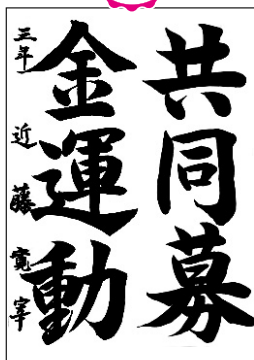 共同募
金運動
三年 近藤寛宰